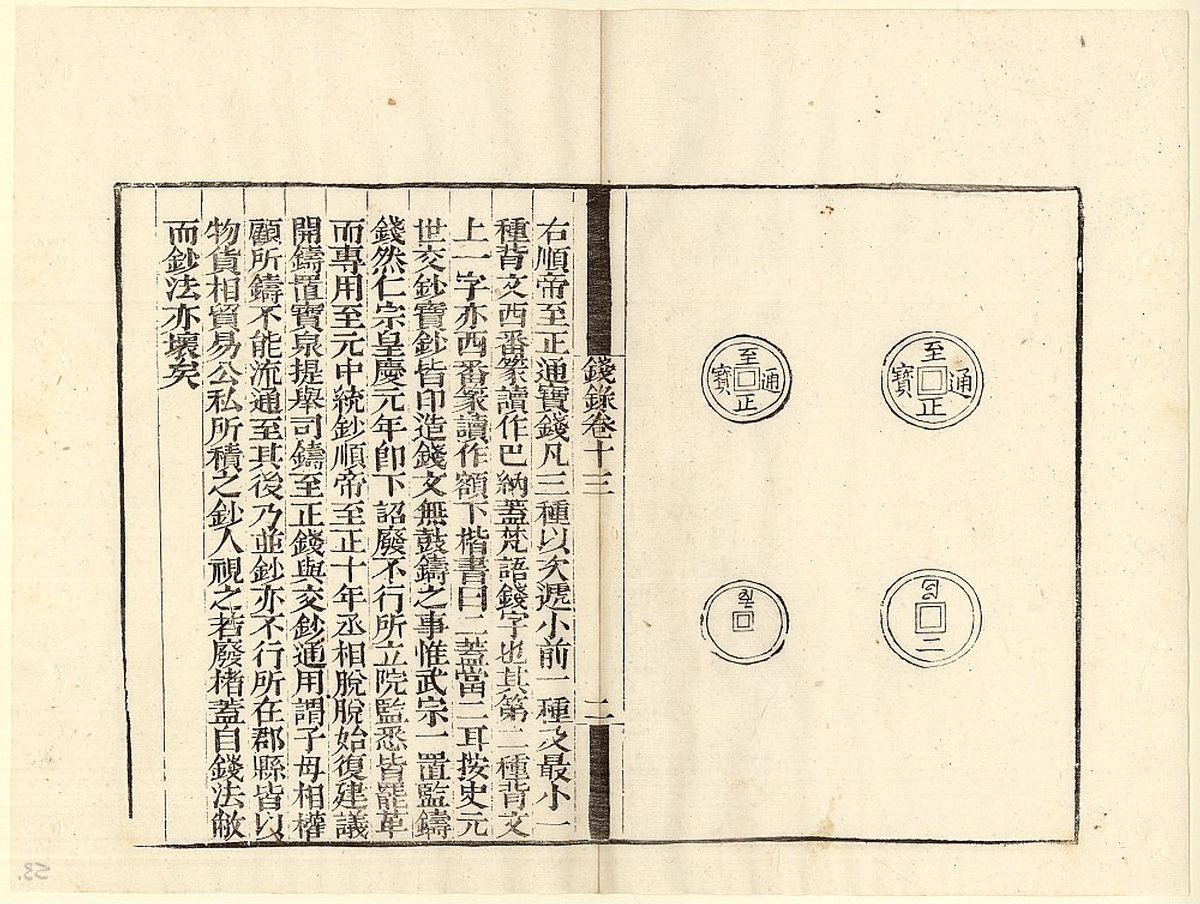 至正通寶
二
至正通寶
錢錄卷十三
二
右順帝至正通寶錢凡三種以次遞小前一種及最小一
種背文西番篆讀作巴納蓋梵語錢字也其第二種背文
上一字亦西番篆讀作額下楷書曰二蓋當二耳按史元
世交鈔寶鈔皆印造錢文無鼓鑄之事惟武宗一置監鑄
錢然仁宗皇慶元年卽下詔廢不行所立院監悉皆罷革
而專用至元中統鈔順帝至正十年丞相脫脫始復建議
開鑄置寶泉提舉司鑄至正錢與交鈔通用謂子母相權
顧所鑄不能流通至其後乃並鈔亦不行所在郡縣皆以
物貨相貿易公私所積之鈔人視之若廢楮蓋自錢法敝
而鈔法亦壞矣
53.